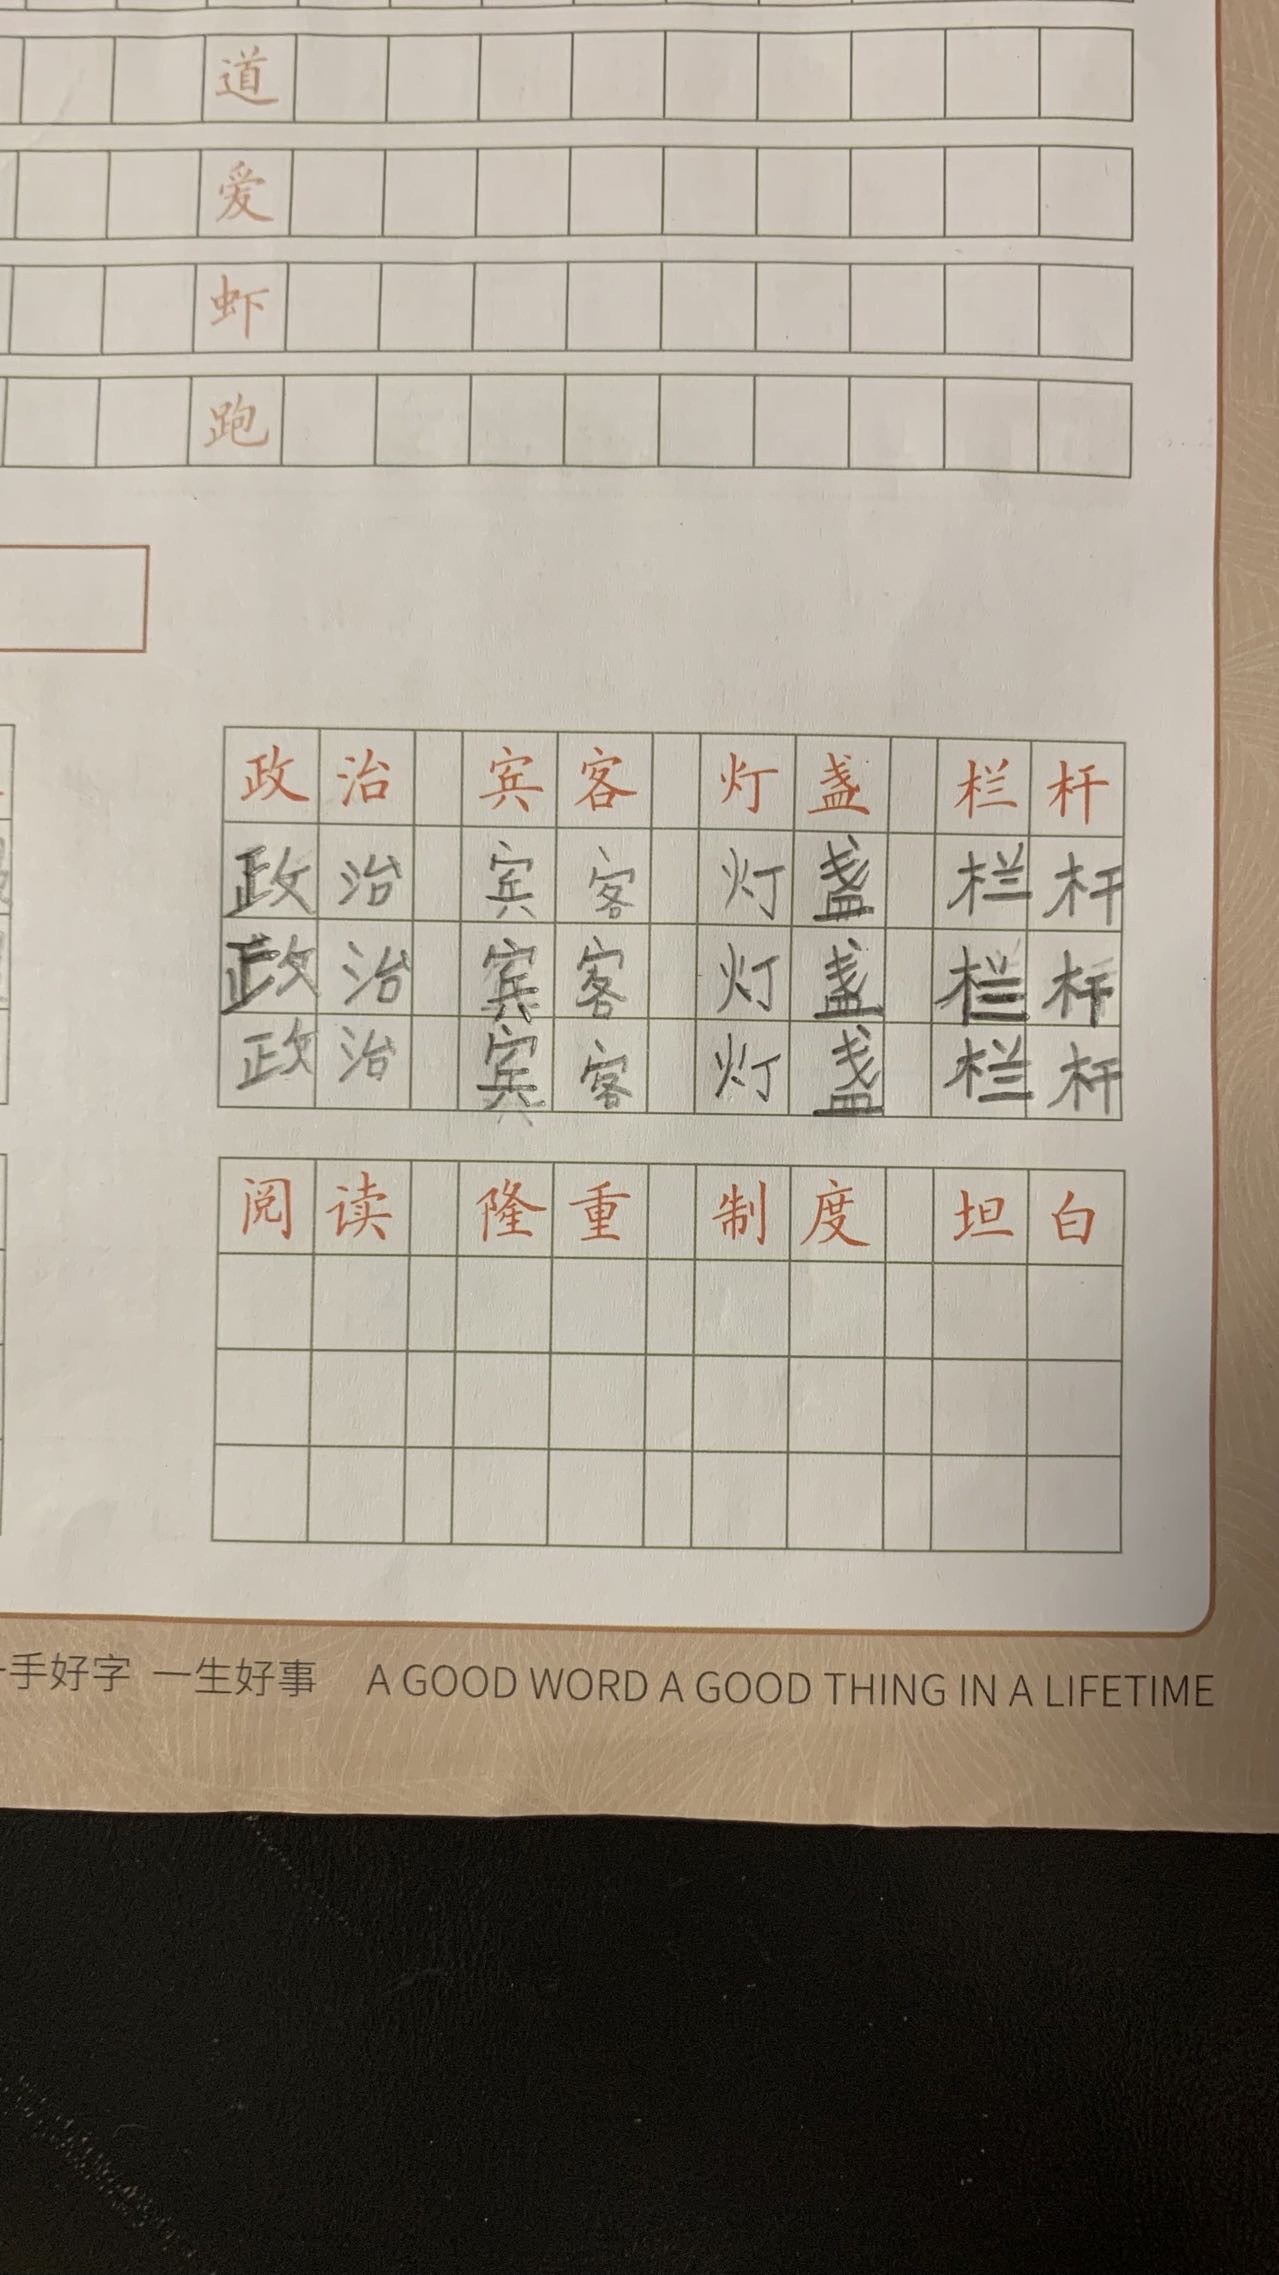 道
爱
虾
跑
政治 宾客 灯盏 栏杆
政治 宾客 灯盏 栏杆
政治 宾客 灯盏 栏杆
政治 宾客 灯盏 栏杆
阅读 隆重 制度 坦白
手好字 一生好事 A GOOD WORD A GOOD THING IN A LIFETIME